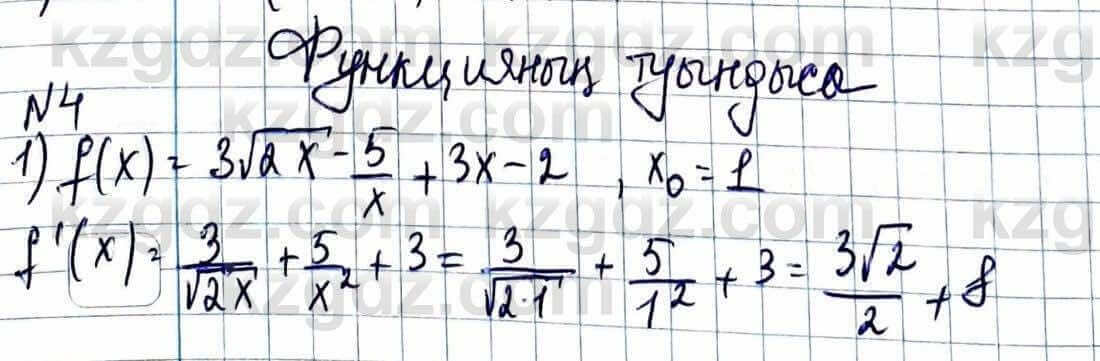 Функцияның туындысы
N4
1) f(x) = 3√2x - 5/x + 3x - 2 , x₀ = 1
f'(x) = 3/√2x + 5/x² + 3 = 3/√2·1 + 5/1² + 3 = 3√2/2 + 8
kzgdz.com